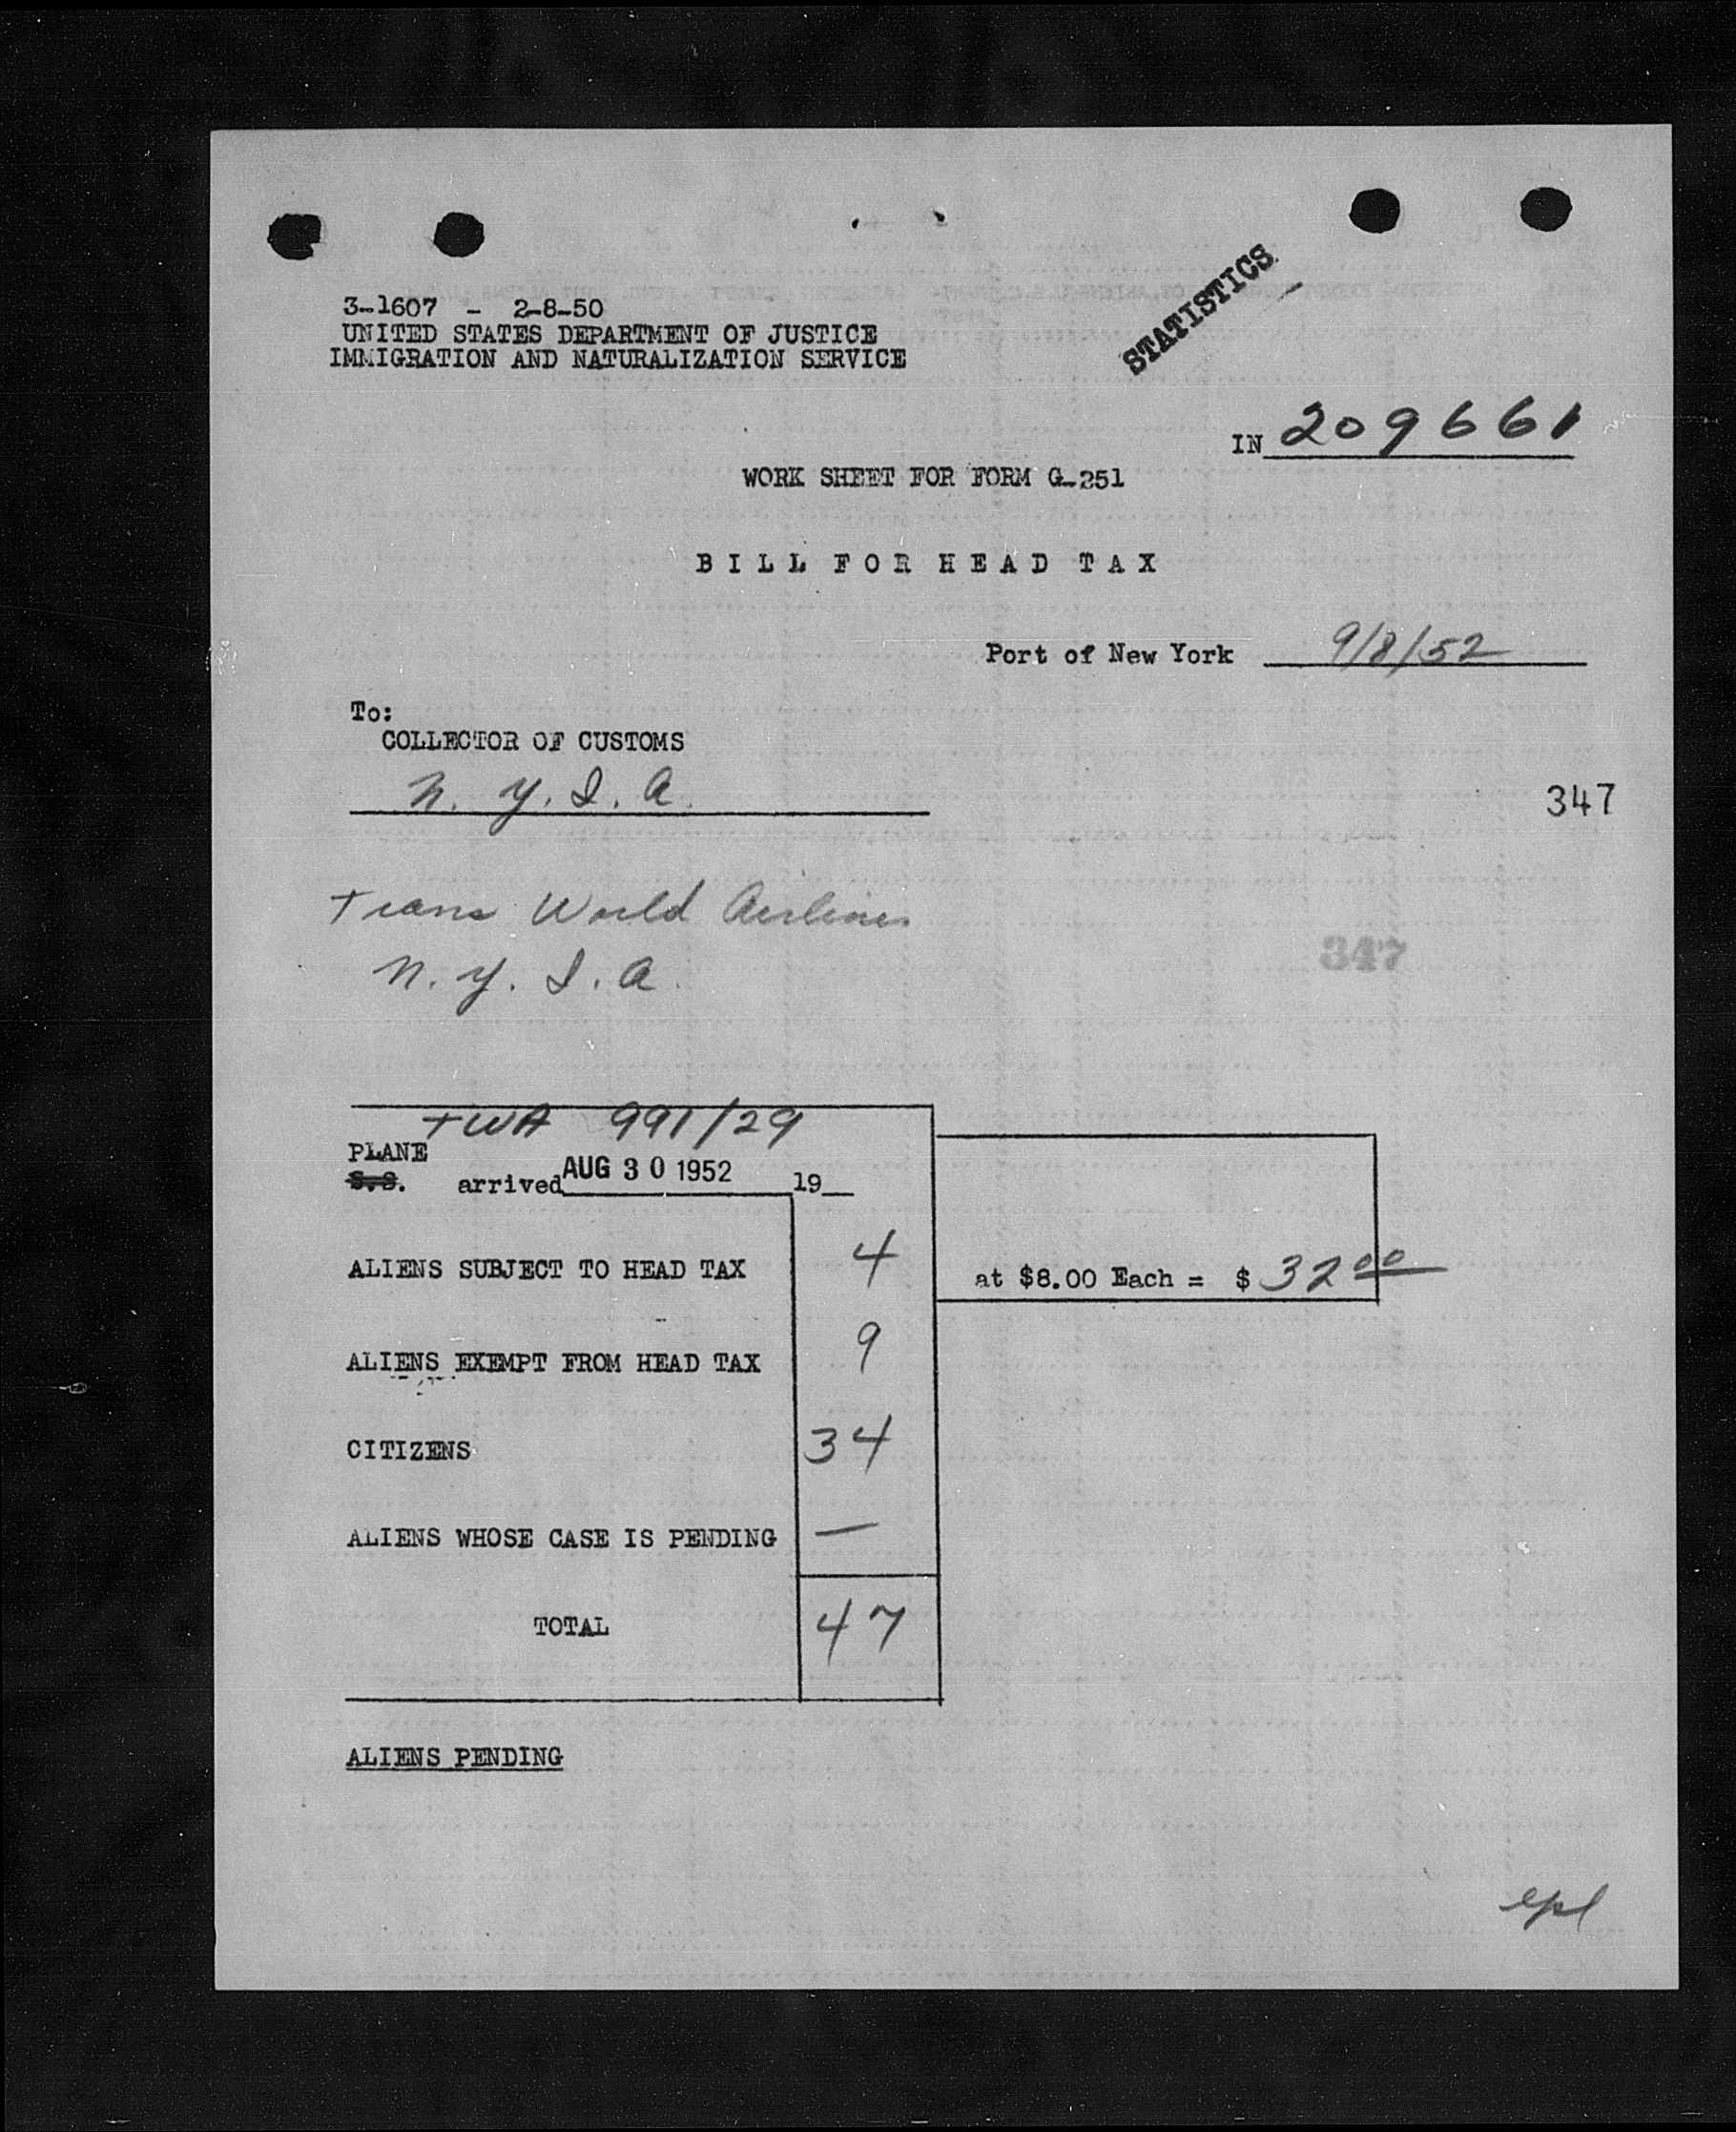 STATISTICS
3-1607 - 2-8-50
UNITED STATES DEPARTMENT OF JUSTICE
IMMIGRATION AND NATURALIZATION SERVICE
IN 209661
WORK SHEET FOR FORM G-251
BILL FOR HEAD TAX
Port of New York 9/8/52
To:
COLLECTOR OF CUSTOMS
N. Y. I. A.
347
Trans World Airlines
347
N. Y. I. A.
TWA 991/29
PLANE
S.S. arrived AUG 30 1952 19
ALIENS SUBJECT TO HEAD TAX 4 at $8.00 Each = $ 32 00
ALIENS EXEMPT FROM HEAD TAX 9
CITIZENS 34
ALIENS WHOSE CASE IS PENDING —
TOTAL 47
ALIENS PENDING